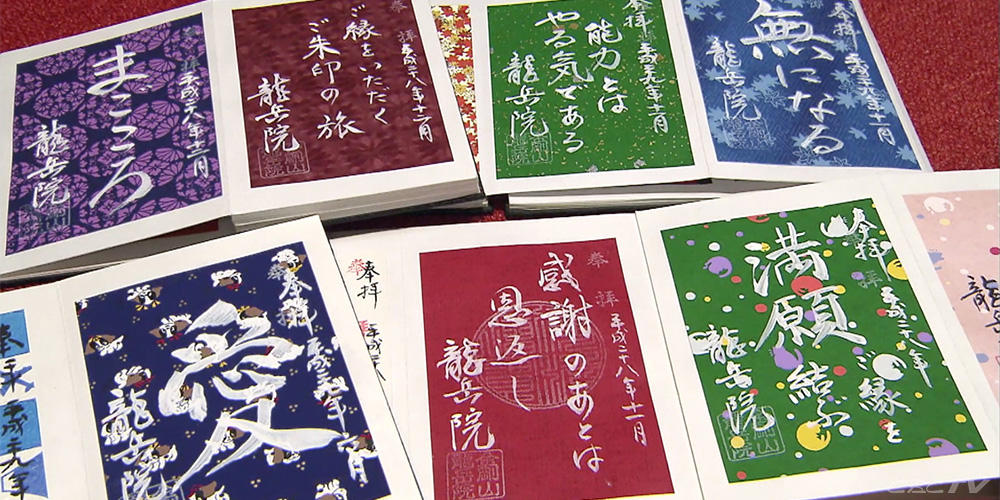 奉拝 平成二八年十二月
まごころ
龍岳院
奉拝 平成二八年十二月
ご縁をいただく
ご朱印の旅
龍岳院
奉拝 平成二九年十一月
能力とは
やる気である
龍岳院
奉拝 平成二九年十一月
無になる
龍岳院
奉拝 平成二九年
奉拝 平成二九年六月
愛
龍岳院
奉拝 平成二八
奉拝 平成二八年十一月
感謝のあとは
恩返し
龍岳院
奉拝 平成二八年
満願 ご縁を
結ぶ
龍岳院
龍